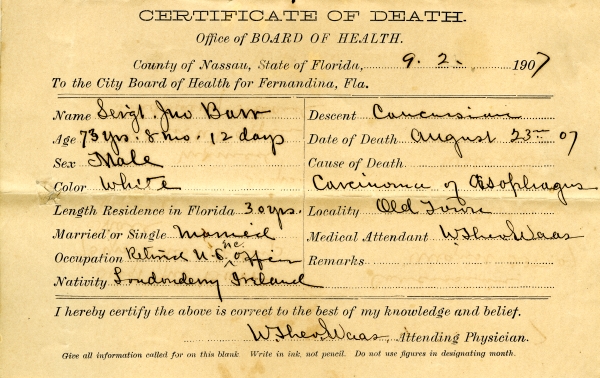 CERTIFICATE OF DEATH.
Office of BOARD OF HEALTH.
County of Nassau, State of Florida, 9. 2. 1907
To the City Board of Health for Fernandina, Fla.
Name Sergt. Jno Barr
Age 73 yrs. 8 mo. 12 days
Sex Male
Color White
Length Residence in Florida 30 yrs.
Married or Single Married
Occupation Retired U.S. Officer
Nativity Londonderry Ireland
Descent Caucasian
Date of Death August 23rd 07
Cause of Death
Carcinoma of Œsophagus
Locality Old Town
Medical Attendant W. Theo. Waas
Remarks
I hereby certify the above is correct to the best of my knowledge and belief.
W. Theo. Waas, Attending Physician.
Give all information called for on this blank. Write in ink, not pencil. Do not use figures in designating month.